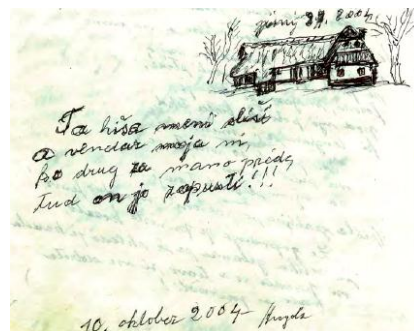 2004
Ta hiša meni sliši
a vendar moja ni,
ko drug za mano préde,
tud on jo zapusti!!!
10. oktober 2004